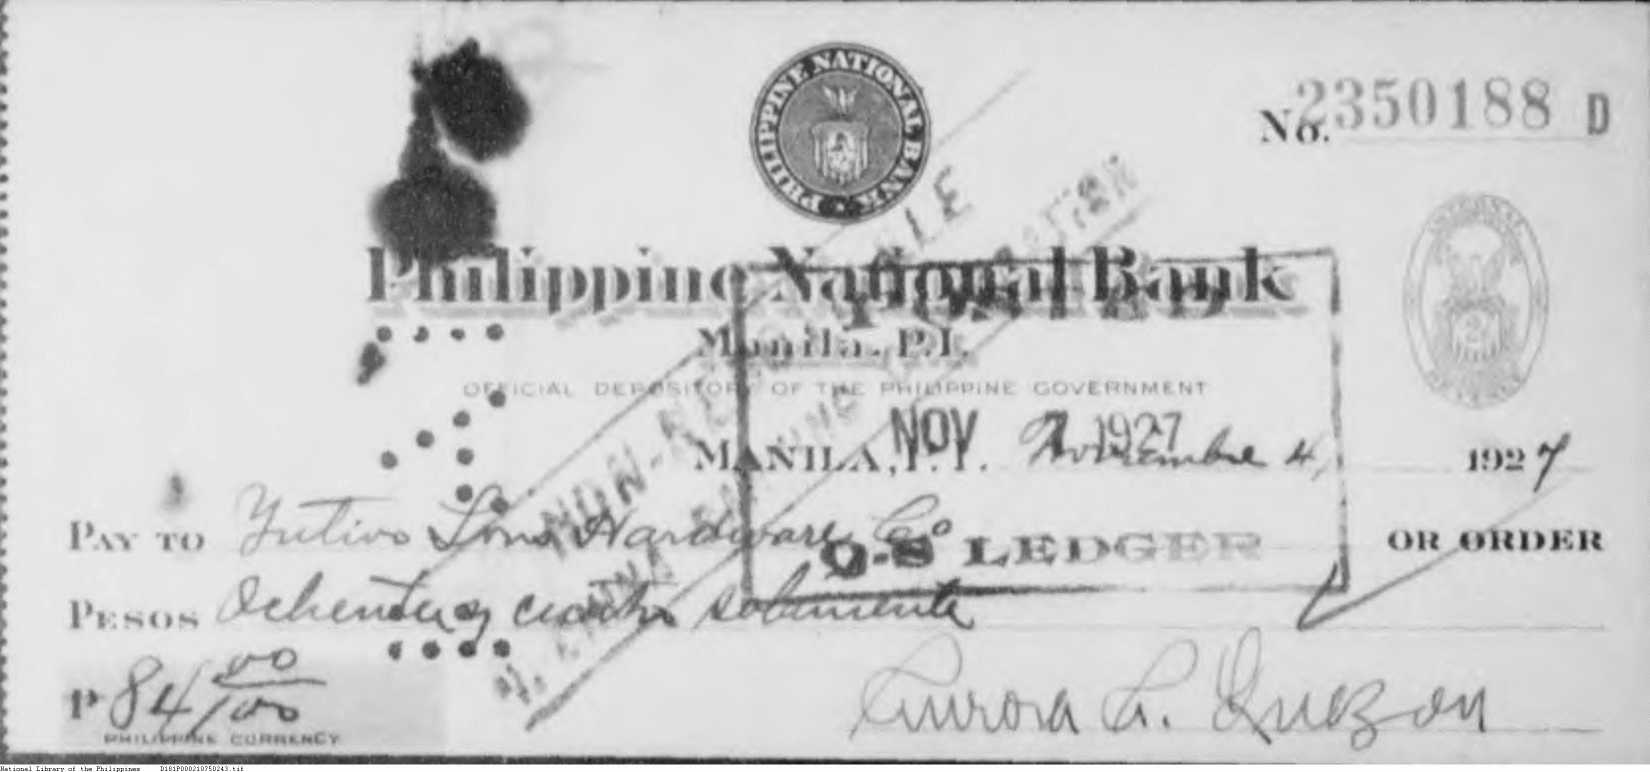 PHILIPPINE NATIONAL BANK
No. 2350188 D
Philippine National Bank
Manila, P.I.
OFFICIAL DEPOSITORY OF THE PHILIPPINE GOVERNMENT
NOV 7 1927
MANILA, P.I. Noviembre 4, 1927
PAY TO Yutivo Sons Hardware Co OR ORDER
O-S LEDGER
PESOS Ochenta y cuatro solamente
P 84 00/100
PHILIPPINE CURRENCY
Aurora A. Quezon
National Library of the Philippines